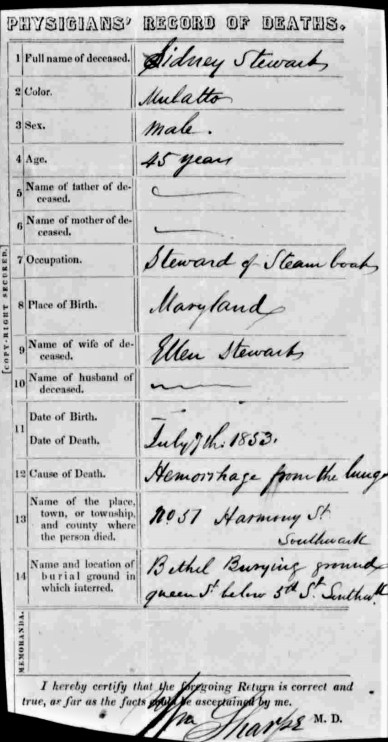 PHYSICIANS' RECORD OF DEATHS.
1 Full name of deceased. Sidney Stewart
2 Color. Mulatto
3 Sex. Male.
4 Age. 45 years
5 Name of father of de-
ceased. —
6 Name of mother of de-
ceased. —
7 Occupation. Steward of Steam boat
8 Place of Birth. Maryland
9 Name of wife of de-
ceased. Ellen Stewart
10 Name of husband of
deceased. —
11 Date of Birth. —
Date of Death. July 7th. 1853.
12 Cause of Death. Hemorrhage from the lungs
13 Name of the place,
town, or township,
and county where
the person died.
No 51 Harmony St
Southwark
14 Name and location of
burial ground in
which interred.
Bethel Burying ground
queen St below 5th St. Southwk
[COPY-RIGHT SECURED.]
MEMORANDA.
I hereby certify that the foregoing Return is correct and
true, as far as the facts could be ascertained by me.
Wm Sharpe M. D.